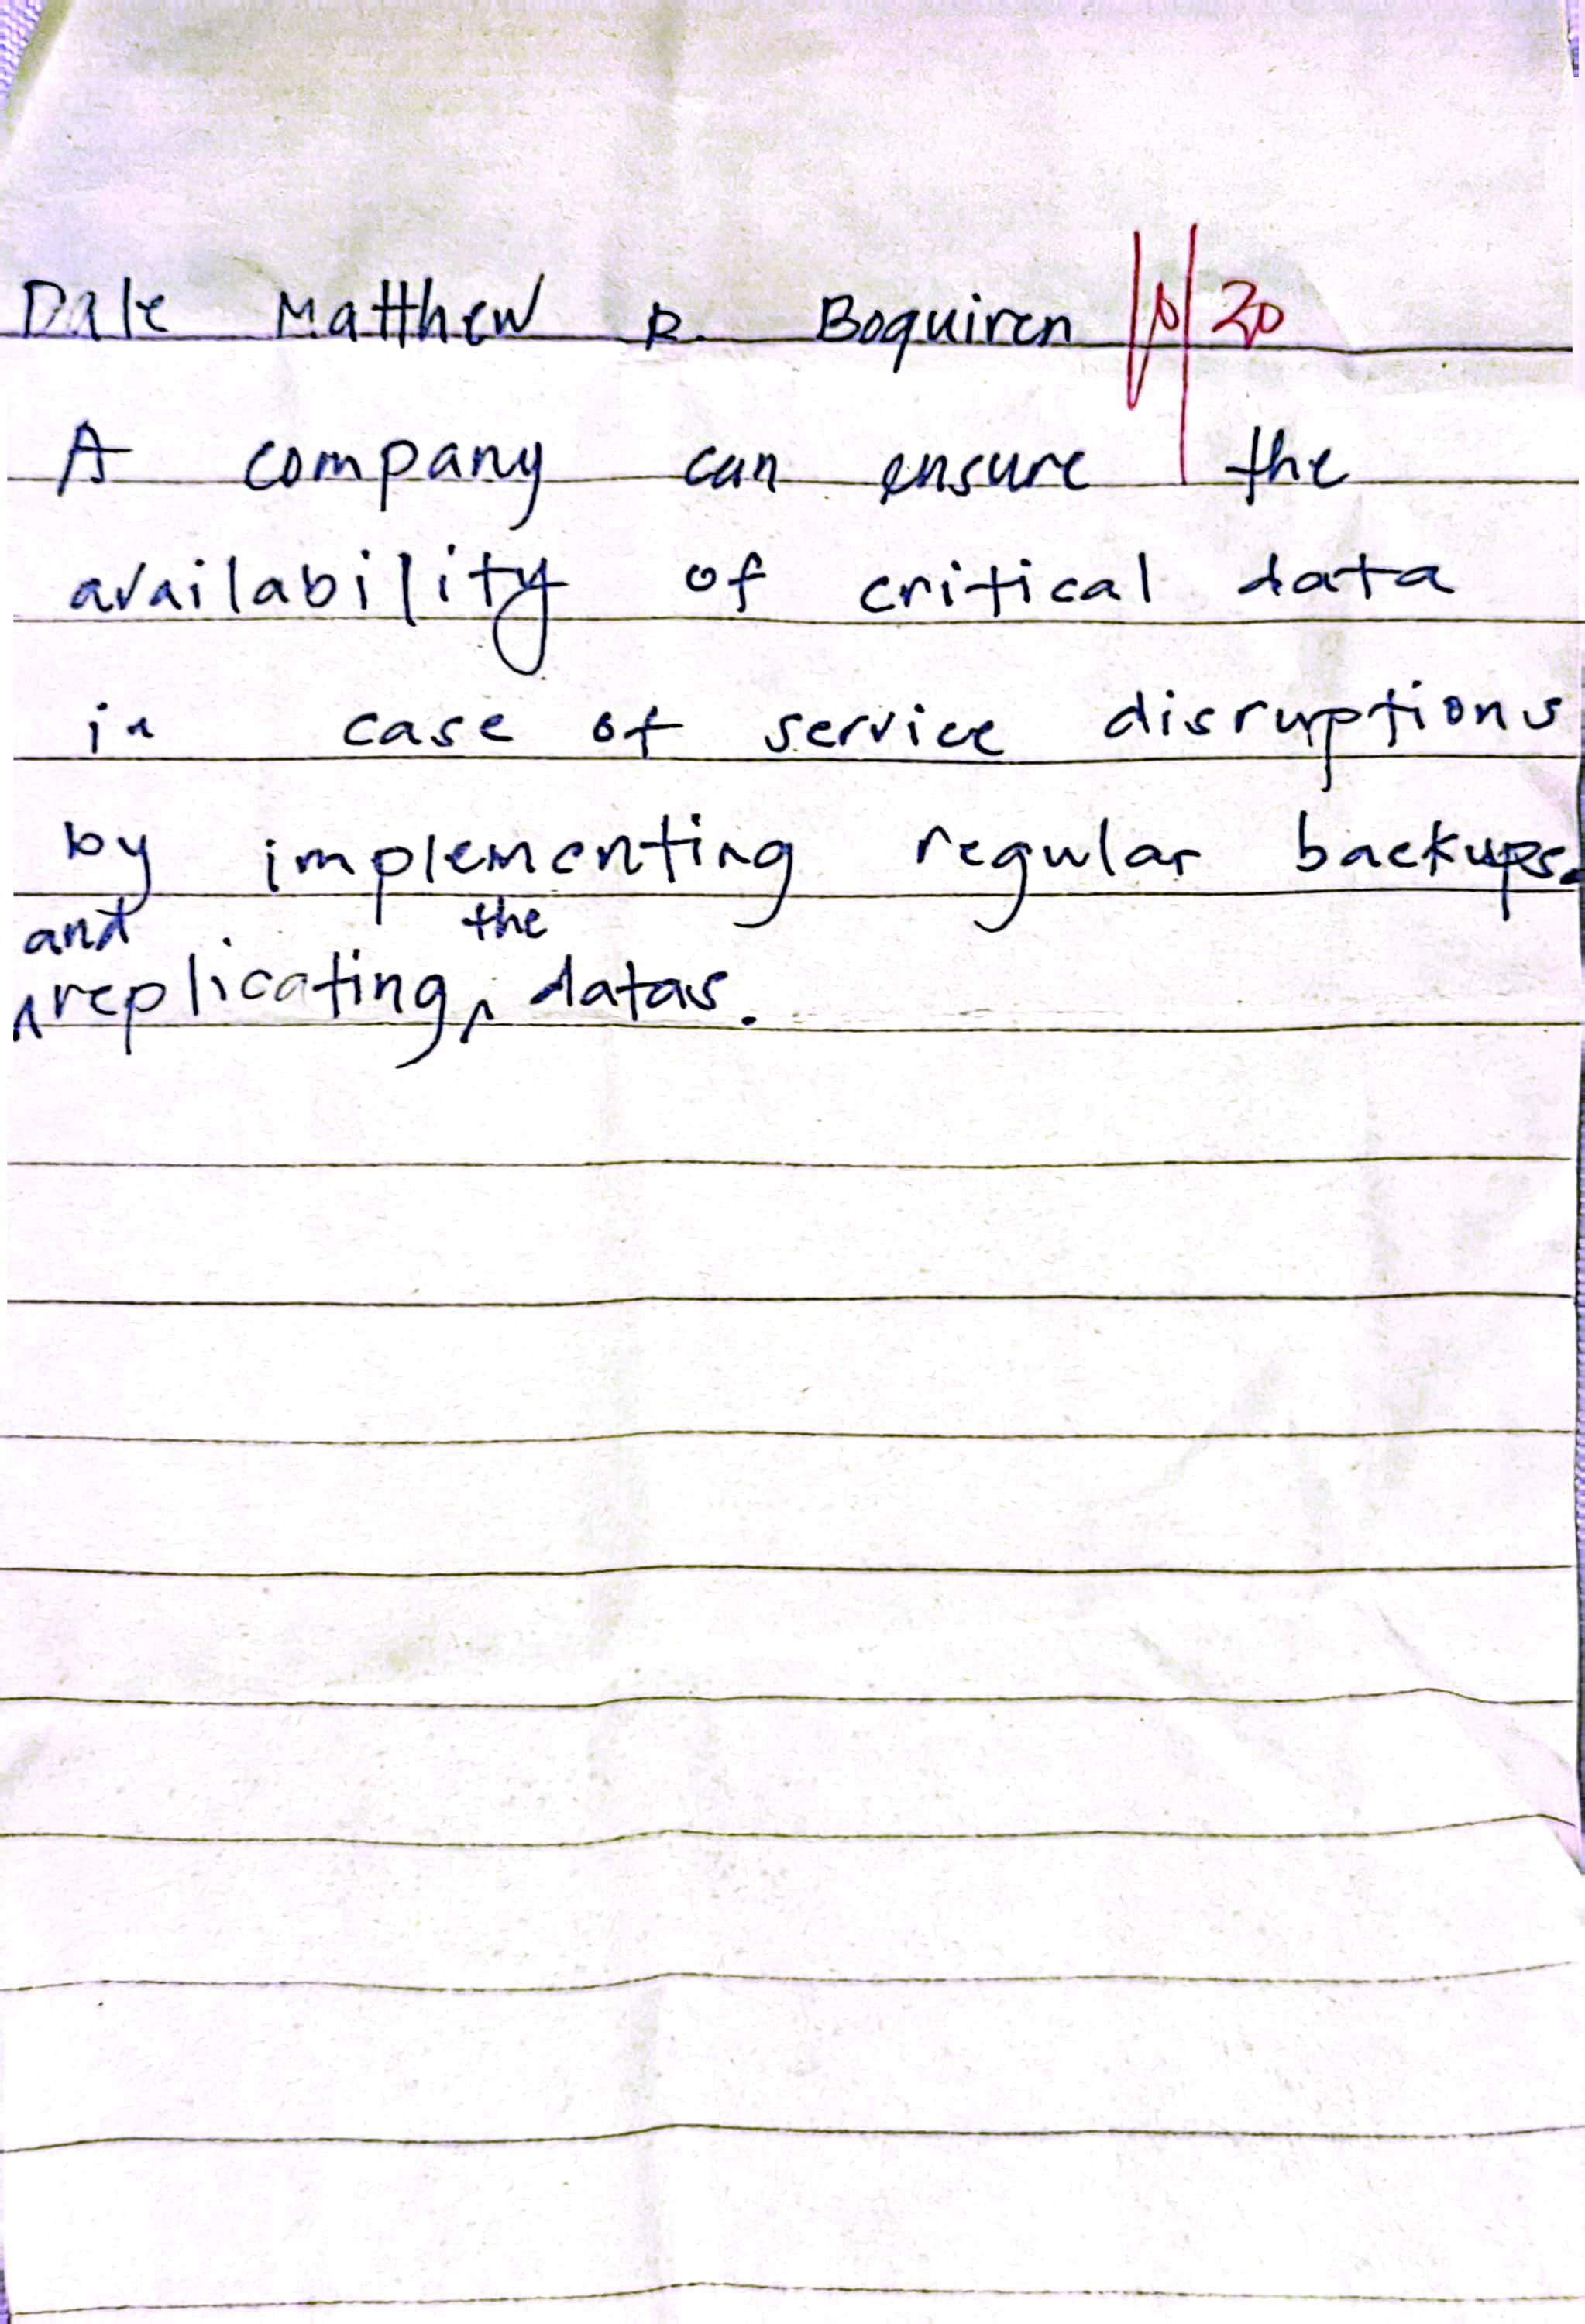 Dale Matthew R. Boquiren 10/20
A company can ensure the
availability of critical data
in case of service disruptions
by implementing regular backups.
and the
replicating datas.